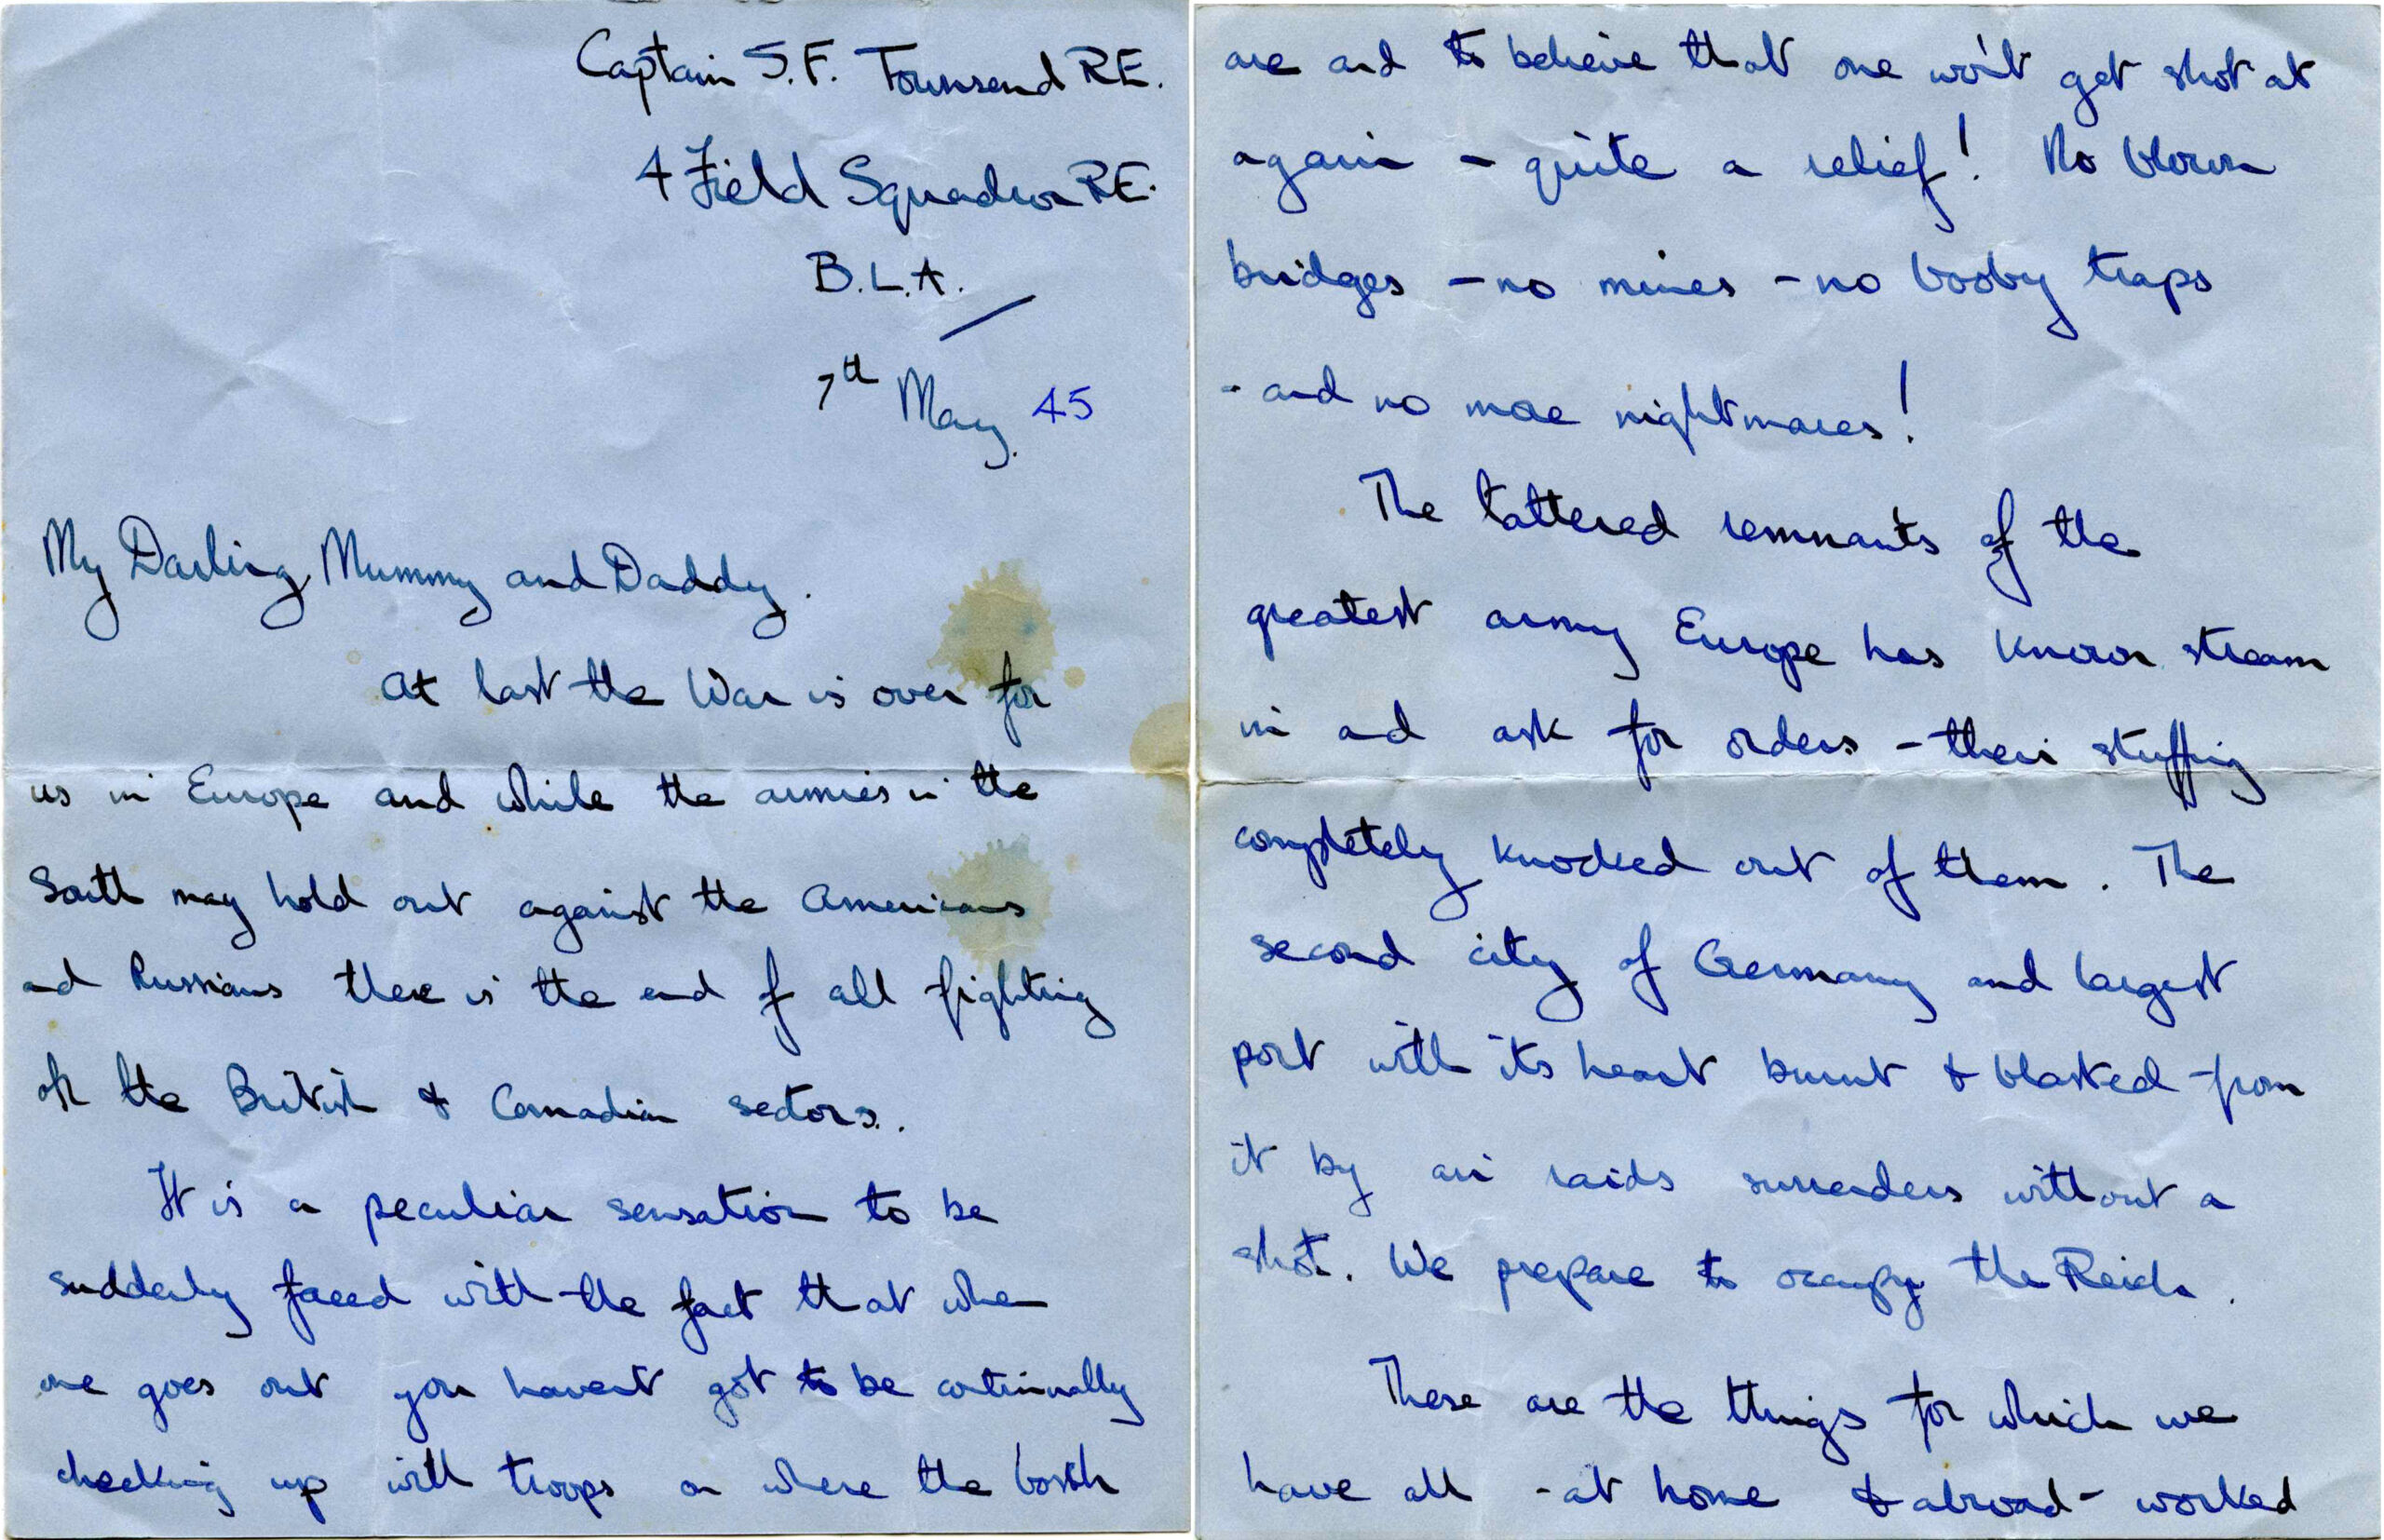 Captain S.F. Townsend RE.
4 Field Squadron RE.
B.L.A.
7th May. 45
My Darling Mummy and Daddy.
At last the War is over for
us in Europe and while the armies in the
South may hold out against the Americans
and Russians there is the end of all fighting
on the British & Canadian sectors.
It is a peculiar sensation to be
suddenly faced with the fact that when
one goes out you havent got to be continually
checking up with troops on where the bosch
are and to believe that one won't get shot at
again - quite a relief! No blown
bridges - no mines - no booby traps
- and no more nightmares!
The tattered remnants of the
greatest army Europe has known stream
in and ask for orders - their stuffing
completely knocked out of them. The
second city of Germany and largest
port with its heart burnt & blasted from
it by air raids surrenders without a
shot. We prepare to occupy the Reich.
These are the things for which we
have all - at home & abroad - worked